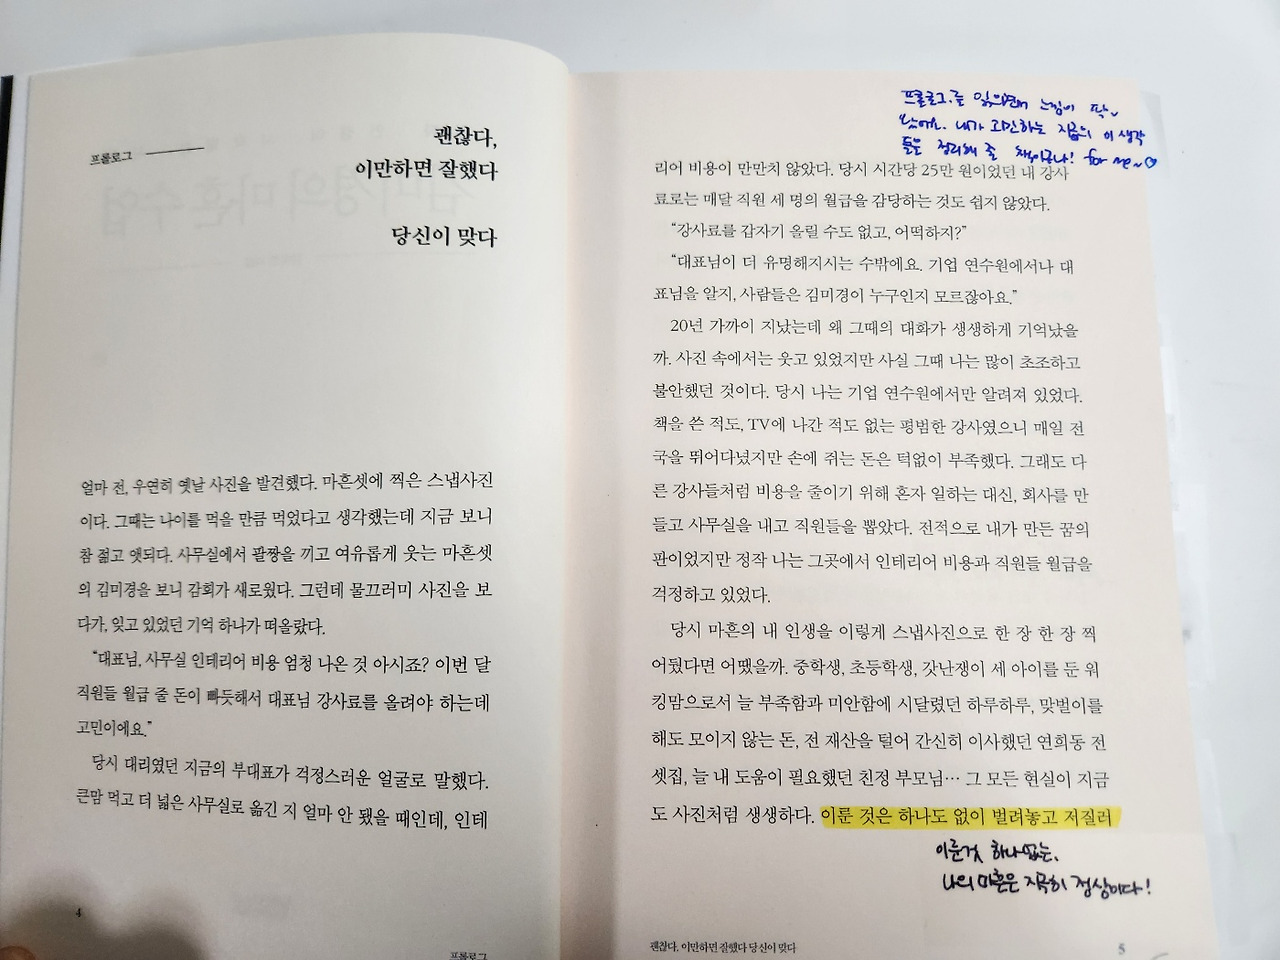 프롤로그
괜찮다,
이만하면 잘했다
당신이 맞다
얼마 전, 우연히 옛날 사진을 발견했다. 마흔셋에 찍은 스냅사진
이다. 그때는 나이를 먹을 만큼 먹었다고 생각했는데 지금 보니
참 젊고 앳되다. 사무실에서 팔짱을 끼고 여유롭게 웃는 마흔셋
의 김미경을 보니 감회가 새로웠다. 그런데 물끄러미 사진을 보
다가, 잊고 있었던 기억 하나가 떠올랐다.
“대표님, 사무실 인테리어 비용 엄청 나온 것 아시죠? 이번 달
직원들 월급 줄 돈이 빠듯해서 대표님 강사료를 올려야 하는데
고민이에요.”
당시 대리였던 지금의 부대표가 걱정스러운 얼굴로 말했다.
큰맘 먹고 더 넓은 사무실로 옮긴 지 얼마 안 됐을 때인데, 인테
4
프롤로그
프롤로그를 읽으면서 느낌이 딱~
났어요. 내가 고민하는 지금의 이 생각
들을 정리해 줄 책이구나! for me~♡
리어 비용이 만만치 않았다. 당시 시간당 25만 원이었던 내 강사
료로는 매달 직원 세 명의 월급을 감당하는 것도 쉽지 않았다.
“강사료를 갑자기 올릴 수도 없고, 어떡하지?”
“대표님이 더 유명해지시는 수밖에요. 기업 연수원에서나 대
표님을 알지, 사람들은 김미경이 누구인지 모르잖아요.”
20년 가까이 지났는데 왜 그때의 대화가 생생하게 기억났을
까. 사진 속에서는 웃고 있었지만 사실 그때 나는 많이 초조하고
불안했던 것이다. 당시 나는 기업 연수원에서만 알려져 있었다.
책을 쓴 적도, TV에 나간 적도 없는 평범한 강사였으니 매일 전
국을 뛰어다녔지만 손에 쥐는 돈은 턱없이 부족했다. 그래도 다
른 강사들처럼 비용을 줄이기 위해 혼자 일하는 대신, 회사를 만
들고 사무실을 내고 직원들을 뽑았다. 전적으로 내가 만든 꿈의
판이었지만 정작 나는 그곳에서 인테리어 비용과 직원들 월급을
걱정하고 있었다.
당시 마흔의 내 인생을 이렇게 스냅사진으로 한 장 한 장 찍
어뒀다면 어땠을까. 중학생, 초등학생, 갓난쟁이 세 아이를 둔 워
킹맘으로서 늘 부족함과 미안함에 시달렸던 하루하루, 맞벌이를
해도 모이지 않는 돈, 전 재산을 털어 간신히 이사했던 연희동 전
셋집, 늘 내 도움이 필요했던 친정 부모님… 그 모든 현실이 지금
도 사진처럼 생생하다. 이룬 것은 하나도 없이 벌려놓고 저질러
이룬것 하나없는,
나의 마흔은 지극히 정상이다!
괜찮다, 이만하면 잘했다 당신이 맞다
5